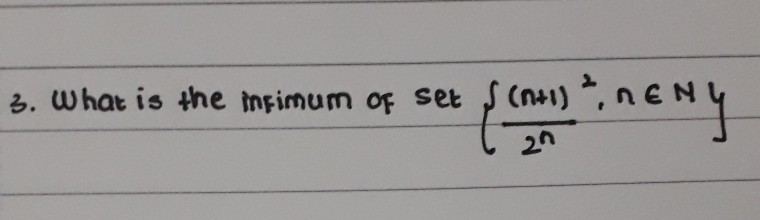 3. What is the infimum of set { (n+1)², n ∈ N }
2ⁿ